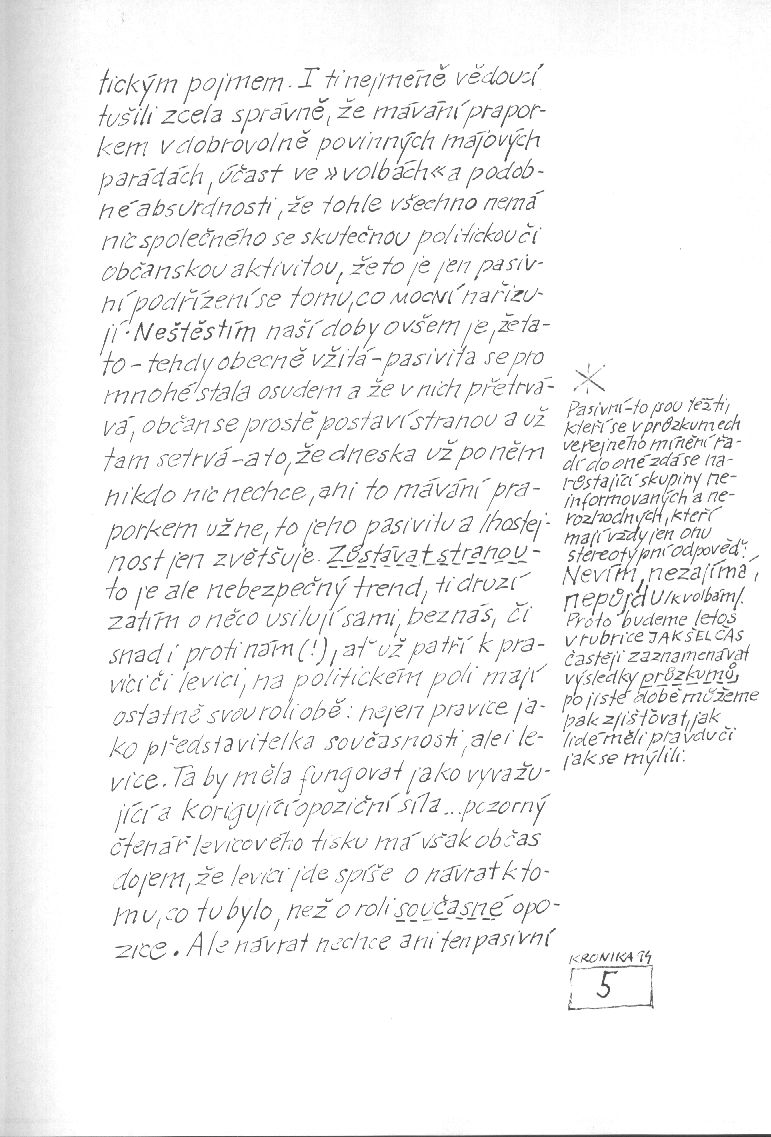 tickým pojmem. I ti nejméně vědoucí
tušili zcela správně, že mávání prapor-
kem v dobrovolně povinných májových
parádách, účast ve »volbách« a podob-
né absurdnosti, že tohle všechno nemá
nic společného se skutečnou politickou či
občanskou aktivitou, že to je jen pasiv-
ní podřízení se tomu, co MOCNÍ nařizu-
jí. Neštěstím naší doby ovšem je, že ta-
to - tehdy obecně vžitá - pasivita se pro
mnohé stala osudem a že v nich přetrvá-
vá, občan se prostě postaví stranou a už
tam setrvá - a to, že dneska už po něm
nikdo nic nechce, ani to mávání pra-
porkem už ne, to jeho pasivitu a lhostej-
nost jen zvětšuje. Zůstávat stranou -
to je ale nebezpečný trend, ti druzí
zatím o něco usilují sami, bez nás, či
snad i proti nám (!), ať už patří k pra-
vici či levici, na politickém poli mají
ostatně svou roli obě: nejen pravice ja-
ko představitelka současnosti, ale i le-
vice. Ta by měla fungovat jako vyvažu-
jící a korigující opoziční síla... pozorný
čtenář levicového tisku má však občas
dojem, že levici jde spíše o návrat k to-
mu, co tu bylo, než o roli současné opo-
zice. Ale návrat nechce ani ten pasivní
Pasivní - to jsou též ti,
kteří se v průzkumech
veřejného mínění řa-
dí do oné zdá se na-
růstající skupiny ne-
informovaných a ne-
rozhodných, kteří
mají vždy jen onu
stereotypní odpověď:
Nevím, nezajímá,
nepůjdu /k volbám/.
Proto budeme letos
v rubrice JAK ŠEL ČAS
častěji zaznamenávat
výsledky průzkumů,
po jisté době můžeme
pak zjišťovat, jak
lidé měli pravdu či
jak se mýlili.
KRONIKA 94
5